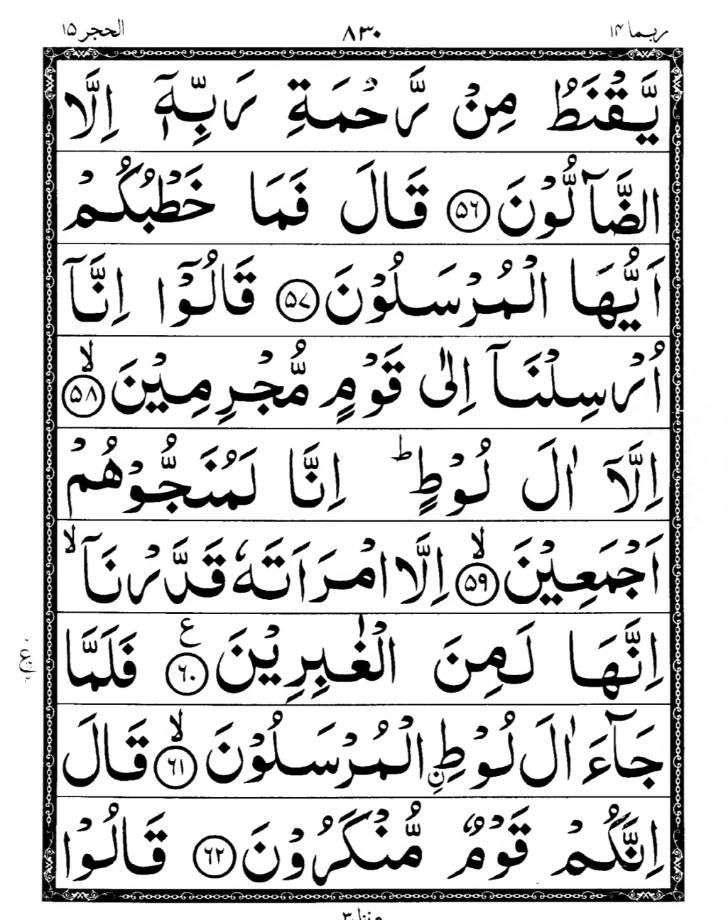 ربما ۱۴ ۸۳۰ الحجر ۱۵
يَّقْنَطُ مِنْ رَّحْمَةِ رَبِّهٖۤ اِلَّا
الضَّآلُّوْنَ ۵۶ قَالَ فَمَا خَطْبُكُمْ
اَيُّهَا الْمُرْسَلُوْنَ ۵۷ قَالُوْۤا اِنَّاۤ
اُرْسِلْنَاۤ اِلٰى قَوْمٍ مُّجْرِمِيْنَ ۙ۵۸
اِلَّاۤ اٰلَ لُوْطٍ ؕ اِنَّا لَمُنَجُّوْهُمْ
اَجْمَعِيْنَ ۙ۵۹ اِلَّا امْرَاَتَهٗ قَدَّرْنَاۤ ۙ
اِنَّهَا لَمِنَ الْغٰبِرِيْنَ ۶۰ ع فَلَمَّا
جَآءَ اٰلَ لُوْطِ ِ۟نِ الْمُرْسَلُوْنَ ۙ۶۱ قَالَ
اِنَّكُمْ قَوْمٌ مُّنْكَرُوْنَ ۶۲ قَالُوْا
منزل ۳